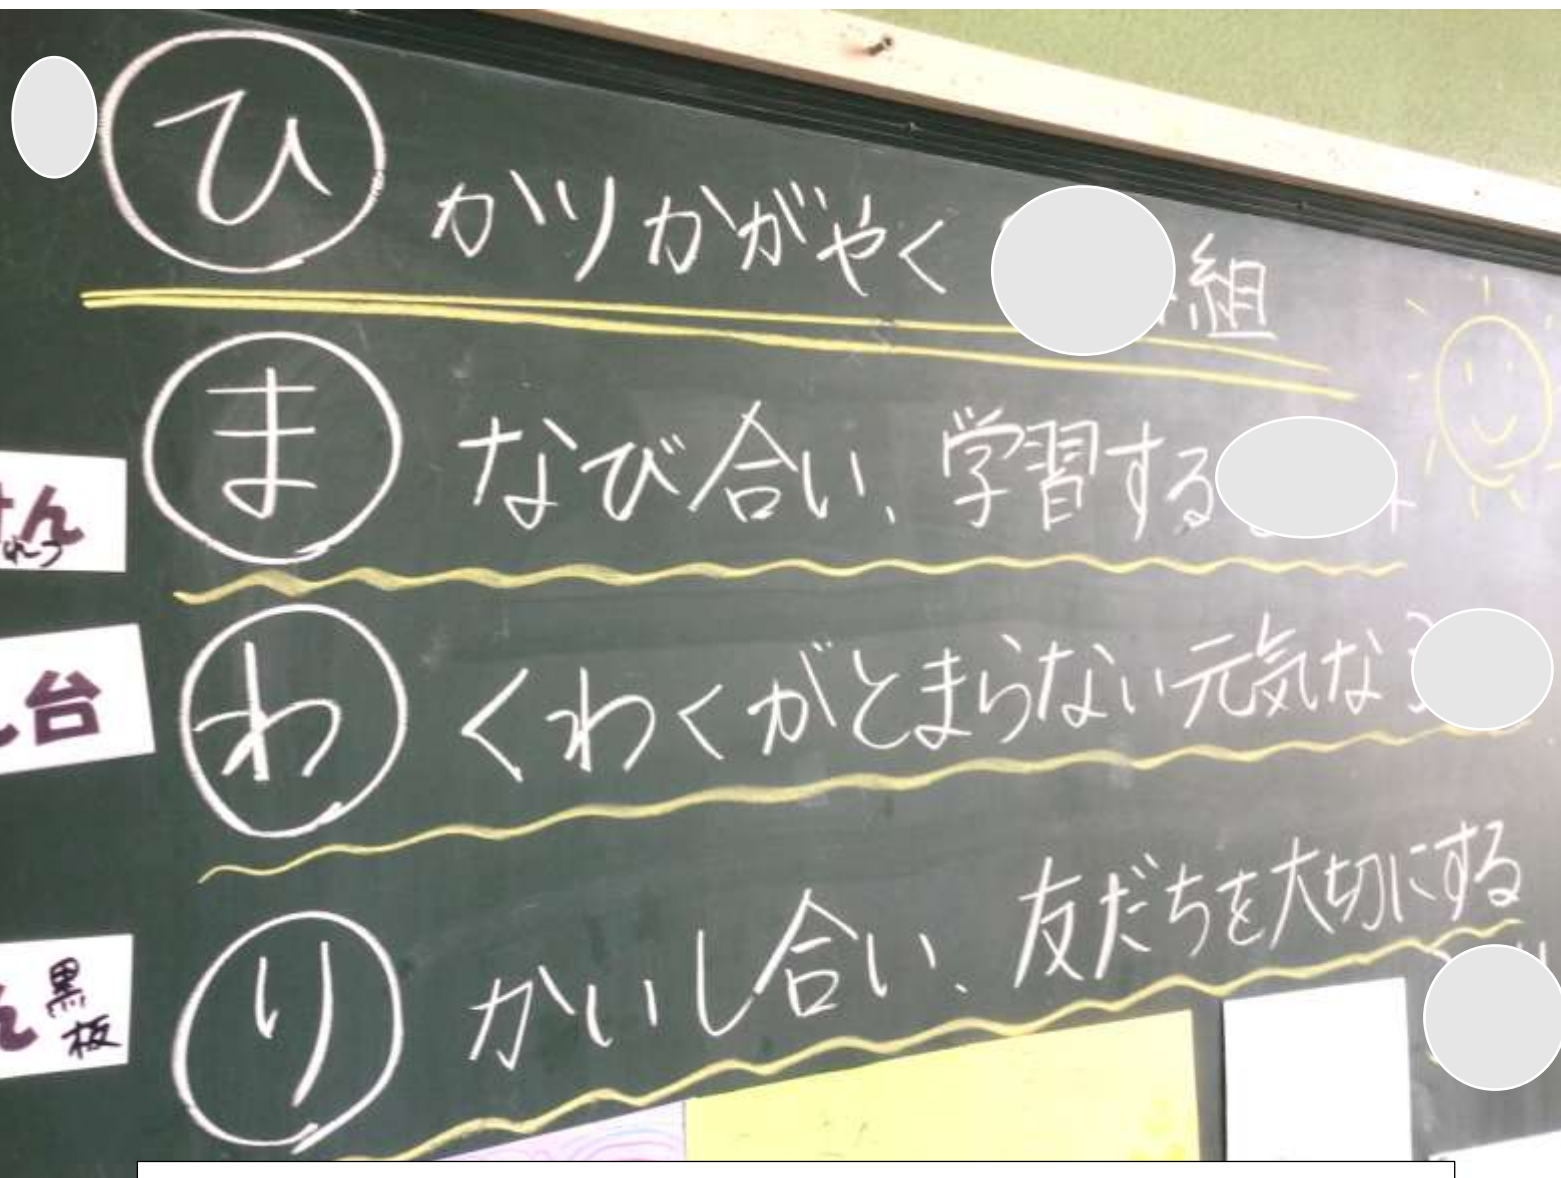 ひかりかがやく 組
まなび合い、学習する
わくわくがとまらない元気な
りかいし合い、友だちを大切にする
台
黒板